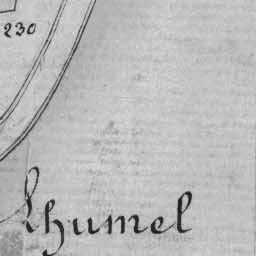 230
Lhumel